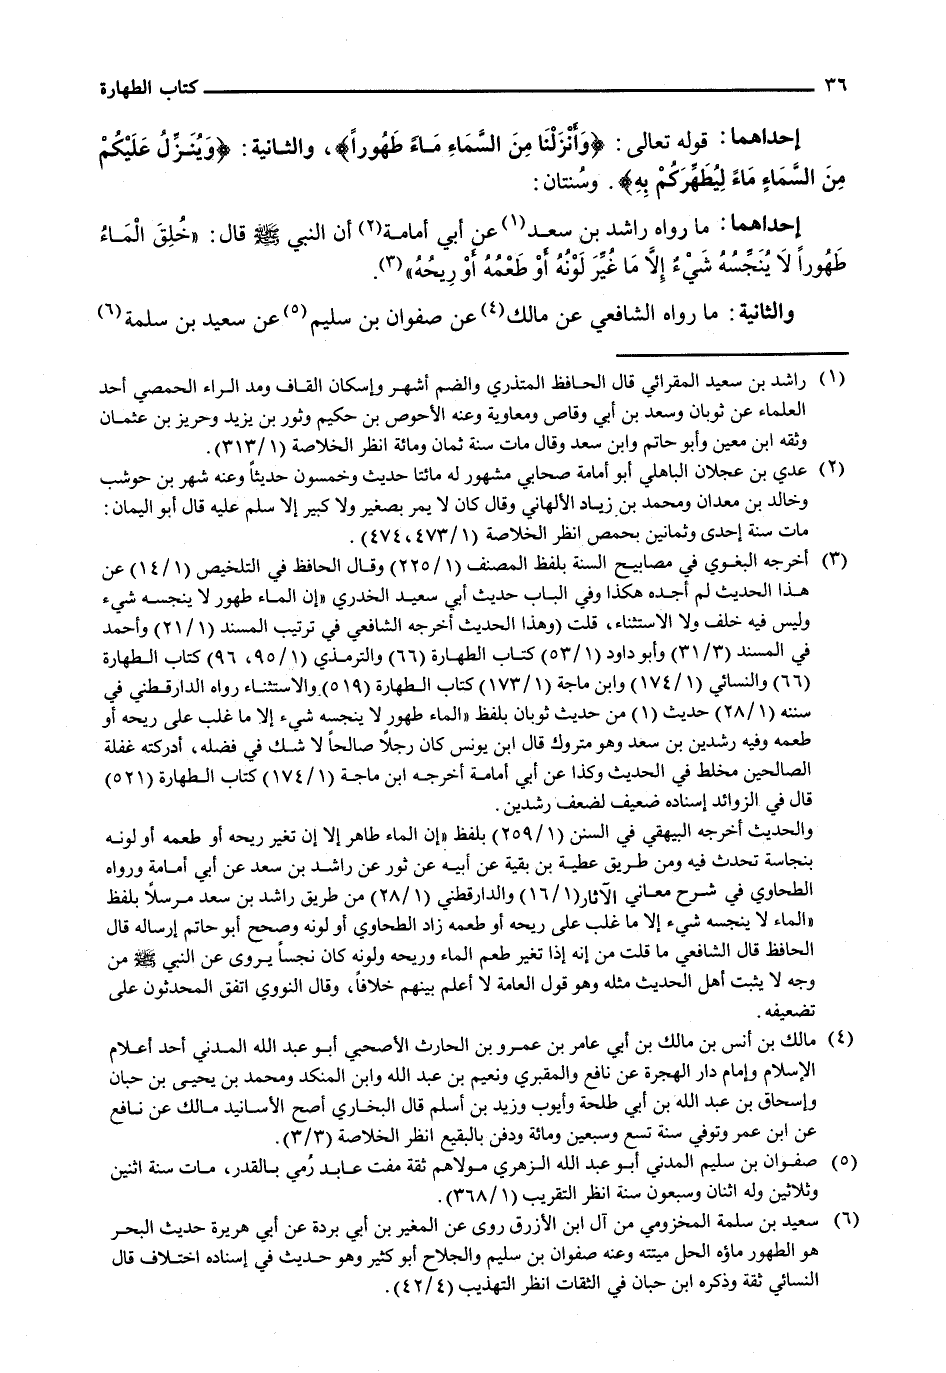 ٣٦ كتاب الطهارة
إحداهما: قوله تعالى: ﴿وَأَنْزَلْنَا مِنَ السَّمَاءِ مَاءً طَهُوراً﴾، والثانية: ﴿وَيُنَزِّلُ عَلَيْكُمْ
مِنَ السَّمَاءِ مَاءً لِيُطَهِّرَكُمْ بِهِ﴾. وسُنتان:
إحداهما: ما رواه راشد بن سعد(١) عن أبي أمامة(٢) أن النبي ﷺ قال: «خُلِقَ الْمَاءُ
طَهُوراً لَا يُنَجِّسُهُ شَيْءٌ إِلَّا مَا غُيِّرَ لَوْنُهُ أَوْ طَعْمُهُ أَوْ رِيحُهُ»(٣).
والثانية: ما رواه الشافعي عن مالك(٤) عن صفوان بن سليم(٥) عن سعيد بن سلمة(٦)
(١) راشد بن سعيد المقرائي قال الحافظ المتذري والضم أشهر وإسكان القاف ومد الراء الحمصي أحد
العلماء عن ثوبان وسعد بن أبي وقاص ومعاوية وعنه الأحوص بن حكيم وثور بن يزيد وحريز بن عثمان
وثقه ابن معين وأبو حاتم وابن سعد وقال مات سنة ثمان ومائة انظر الخلاصة (٣١٣/١).
(٢) عدي بن عجلان الباهلي أبو أمامة صحابي مشهور له مائتا حديث وخمسون حديثاً وعنه شهر بن حوشب
وخالد بن معدان ومحمد بن زياد الألهاني وقال كان لا يمر بصغير ولا كبير إلا سلم عليه قال أبو اليمان:
مات سنة إحدى وثمانين بحمص انظر الخلاصة (٤٧٣/١، ٤٧٤).
(٣) أخرجه البغوي في مصابيح السنة بلفظ المصنف (٢٢٥/١) وقال الحافظ في التلخيص (١٤/١) عن
هذا الحديث لم أجده هكذا وفي الباب حديث أبي سعيد الخدري «إن الماء طهور لا ينجسه شيء
وليس فيه خلف ولا الاستثناء، قلت (وهذا الحديث أخرجه الشافعي في ترتيب المسند (٢١/١) وأحمد
في المسند (٣١/٣) وأبو داود (٥٣/١) كتاب الطهارة (٦٦) والترمذي (٩٥/١، ٩٦) كتاب الطهارة
(٦٦) والنسائي (١٧٤/١) وابن ماجة (١٧٣/١) كتاب الطهارة (٥١٩) والاستثناء رواه الدارقطني في
سننه (٢٨/١) حديث (١) من حديث ثوبان بلفظ «الماء طهور لا ينجسه شيء إلا ما غلب على ريحه أو
طعمه وفيه رشدين بن سعد وهو متروك قال ابن يونس كان رجلاً صالحاً لا شك في فضله، أدركته غفلة
الصالحين مخلط في الحديث وكذا عن أبي أمامة أخرجه ابن ماجة (١٧٤/١) كتاب الطهارة (٥٢١)
قال في الزوائد إسناده ضعيف لضعف رشدين.
والحديث أخرجه البيهقي في السنن (٢٥٩/١) بلفظ «إن الماء طاهر إلا إن تغير ريحه أو طعمه أو لونه
بنجاسة تحدث فيه ومن طريق عطية بن بقية عن أبيه عن ثور عن راشد بن سعد عن أبي أمامة ورواه
الطحاوي في شرح معاني الآثار(١٦/١) والدارقطني (٢٨/١) من طريق راشد بن سعد مرسلاً بلفظ
«الماء لا ينجسه شيء إلا ما غلب على ريحه أو طعمه زاد الطحاوي أو لونه وصحح أبو حاتم إرساله قال
الحافظ قال الشافعي ما قلت من إنه إذا تغير طعم الماء وريحه ولونه كان نجساً يروى عن النبي ﷺ من
وجه لا يثبت أهل الحديث مثله وهو قول العامة لا أعلم بينهم خلافاً، وقال النووي اتفق المحدثون على
تضعيفه.
(٤) مالك بن أنس بن مالك بن أبي عامر بن عمرو بن الحارث الأصحبي أبو عبد الله المدني أحد أعلام
الإسلام وإمام دار الهجرة عن نافع والمقبري ونعيم بن عبد الله وابن المنكد ومحمد بن يحيى بن حبان
وإسحاق بن عبد الله بن أبي طلحة وأيوب وزيد بن أسلم قال البخاري أصح الأسانيد مالك عن نافع
عن ابن عمر وتوفي سنة تسع وسبعين ومائة ودفن بالبقيع انظر الخلاصة (٣/٣).
(٥) صفوان بن سليم المدني أبو عبد الله الزهري مولاهم ثقة مفت عابد رُمي بالقدر، مات سنة اثنين
وثلاثين وله اثنان وسبعون سنة انظر التقريب (٣٦٨/١).
(٦) سعيد بن سلمة المخزومي من آل ابن الأزرق روى عن المغير بن أبي بردة عن أبي هريرة حديث البحر
هو الطهور ماؤه الحل ميتته وعنه صفوان بن سليم والجلاح أبو كثير وهو حديث في إسناده اختلاف قال
النسائي ثقة وذكره ابن حبان في الثقات انظر التهذيب (٤٢/٤).